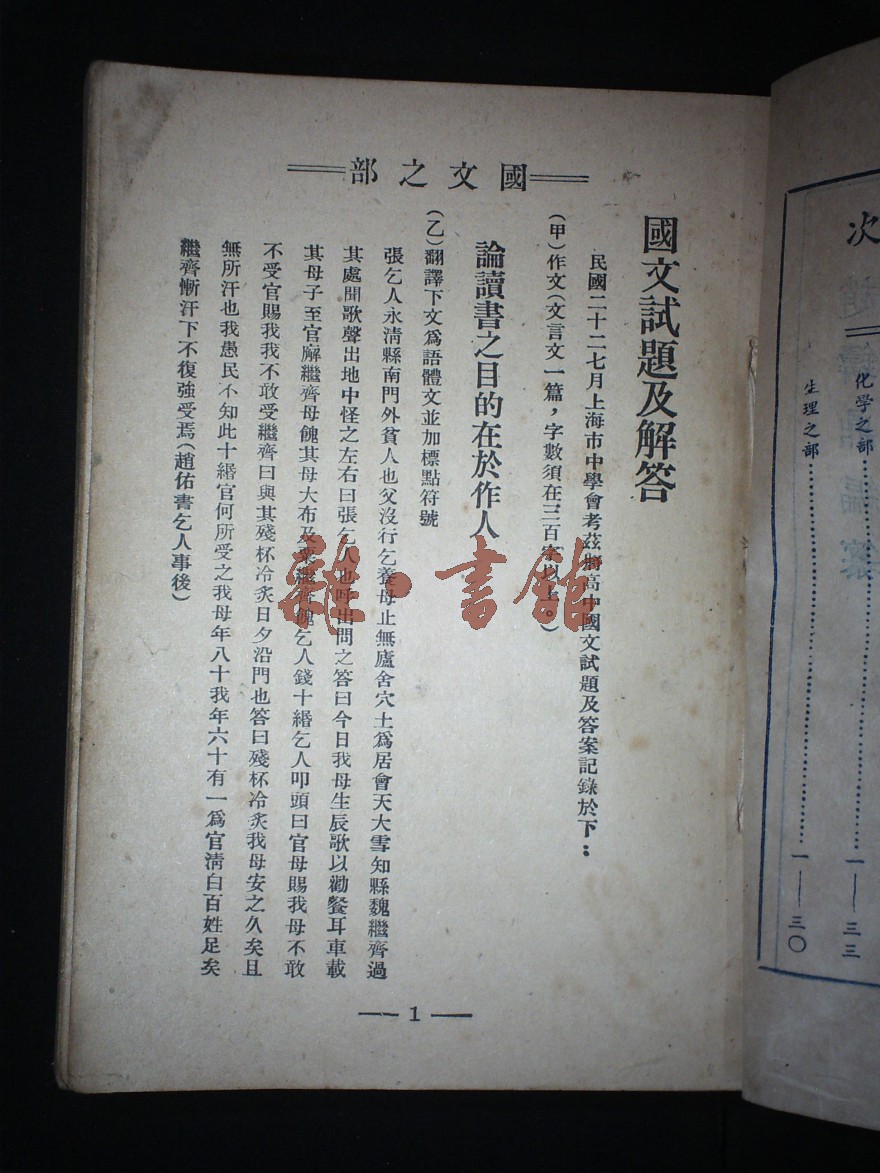 國文之部
國文試題及解答
民國二十二七月上海市中學會考茲將高中國文試題及答案記錄於下：
(甲)作文(文言文一篇，字數須在三百字以上。)
論讀書之目的在於作人
(乙)翻譯下文爲語體文並加標點符號
張乞人永淸縣南門外貧人也父沒行乞養母止無廬舍穴土爲居會天大雪知縣魏繼齊過
其處聞歌聲出地中怪之左右曰張乞人也呼出問之答曰今日我母生辰歌以勸餐耳車載
其母子至官廨繼齊母餽其母大布及粟繼齊餽乞人錢十緡乞人叩頭曰官母賜我母不敢
不受官賜我我不敢受繼齊曰與其殘杯冷炙日夕沿門也答曰殘杯冷炙我母安之久矣且
無所汗也我愚民不知此十緡官何所受之我母年八十我年六十有一爲官淸白百姓足矣
繼齊慚汗下不復強受焉(趙佑書乞人事後)
— 1 —
雜·書館
次
化學之部……………一——三三
生理之部……………一——三〇